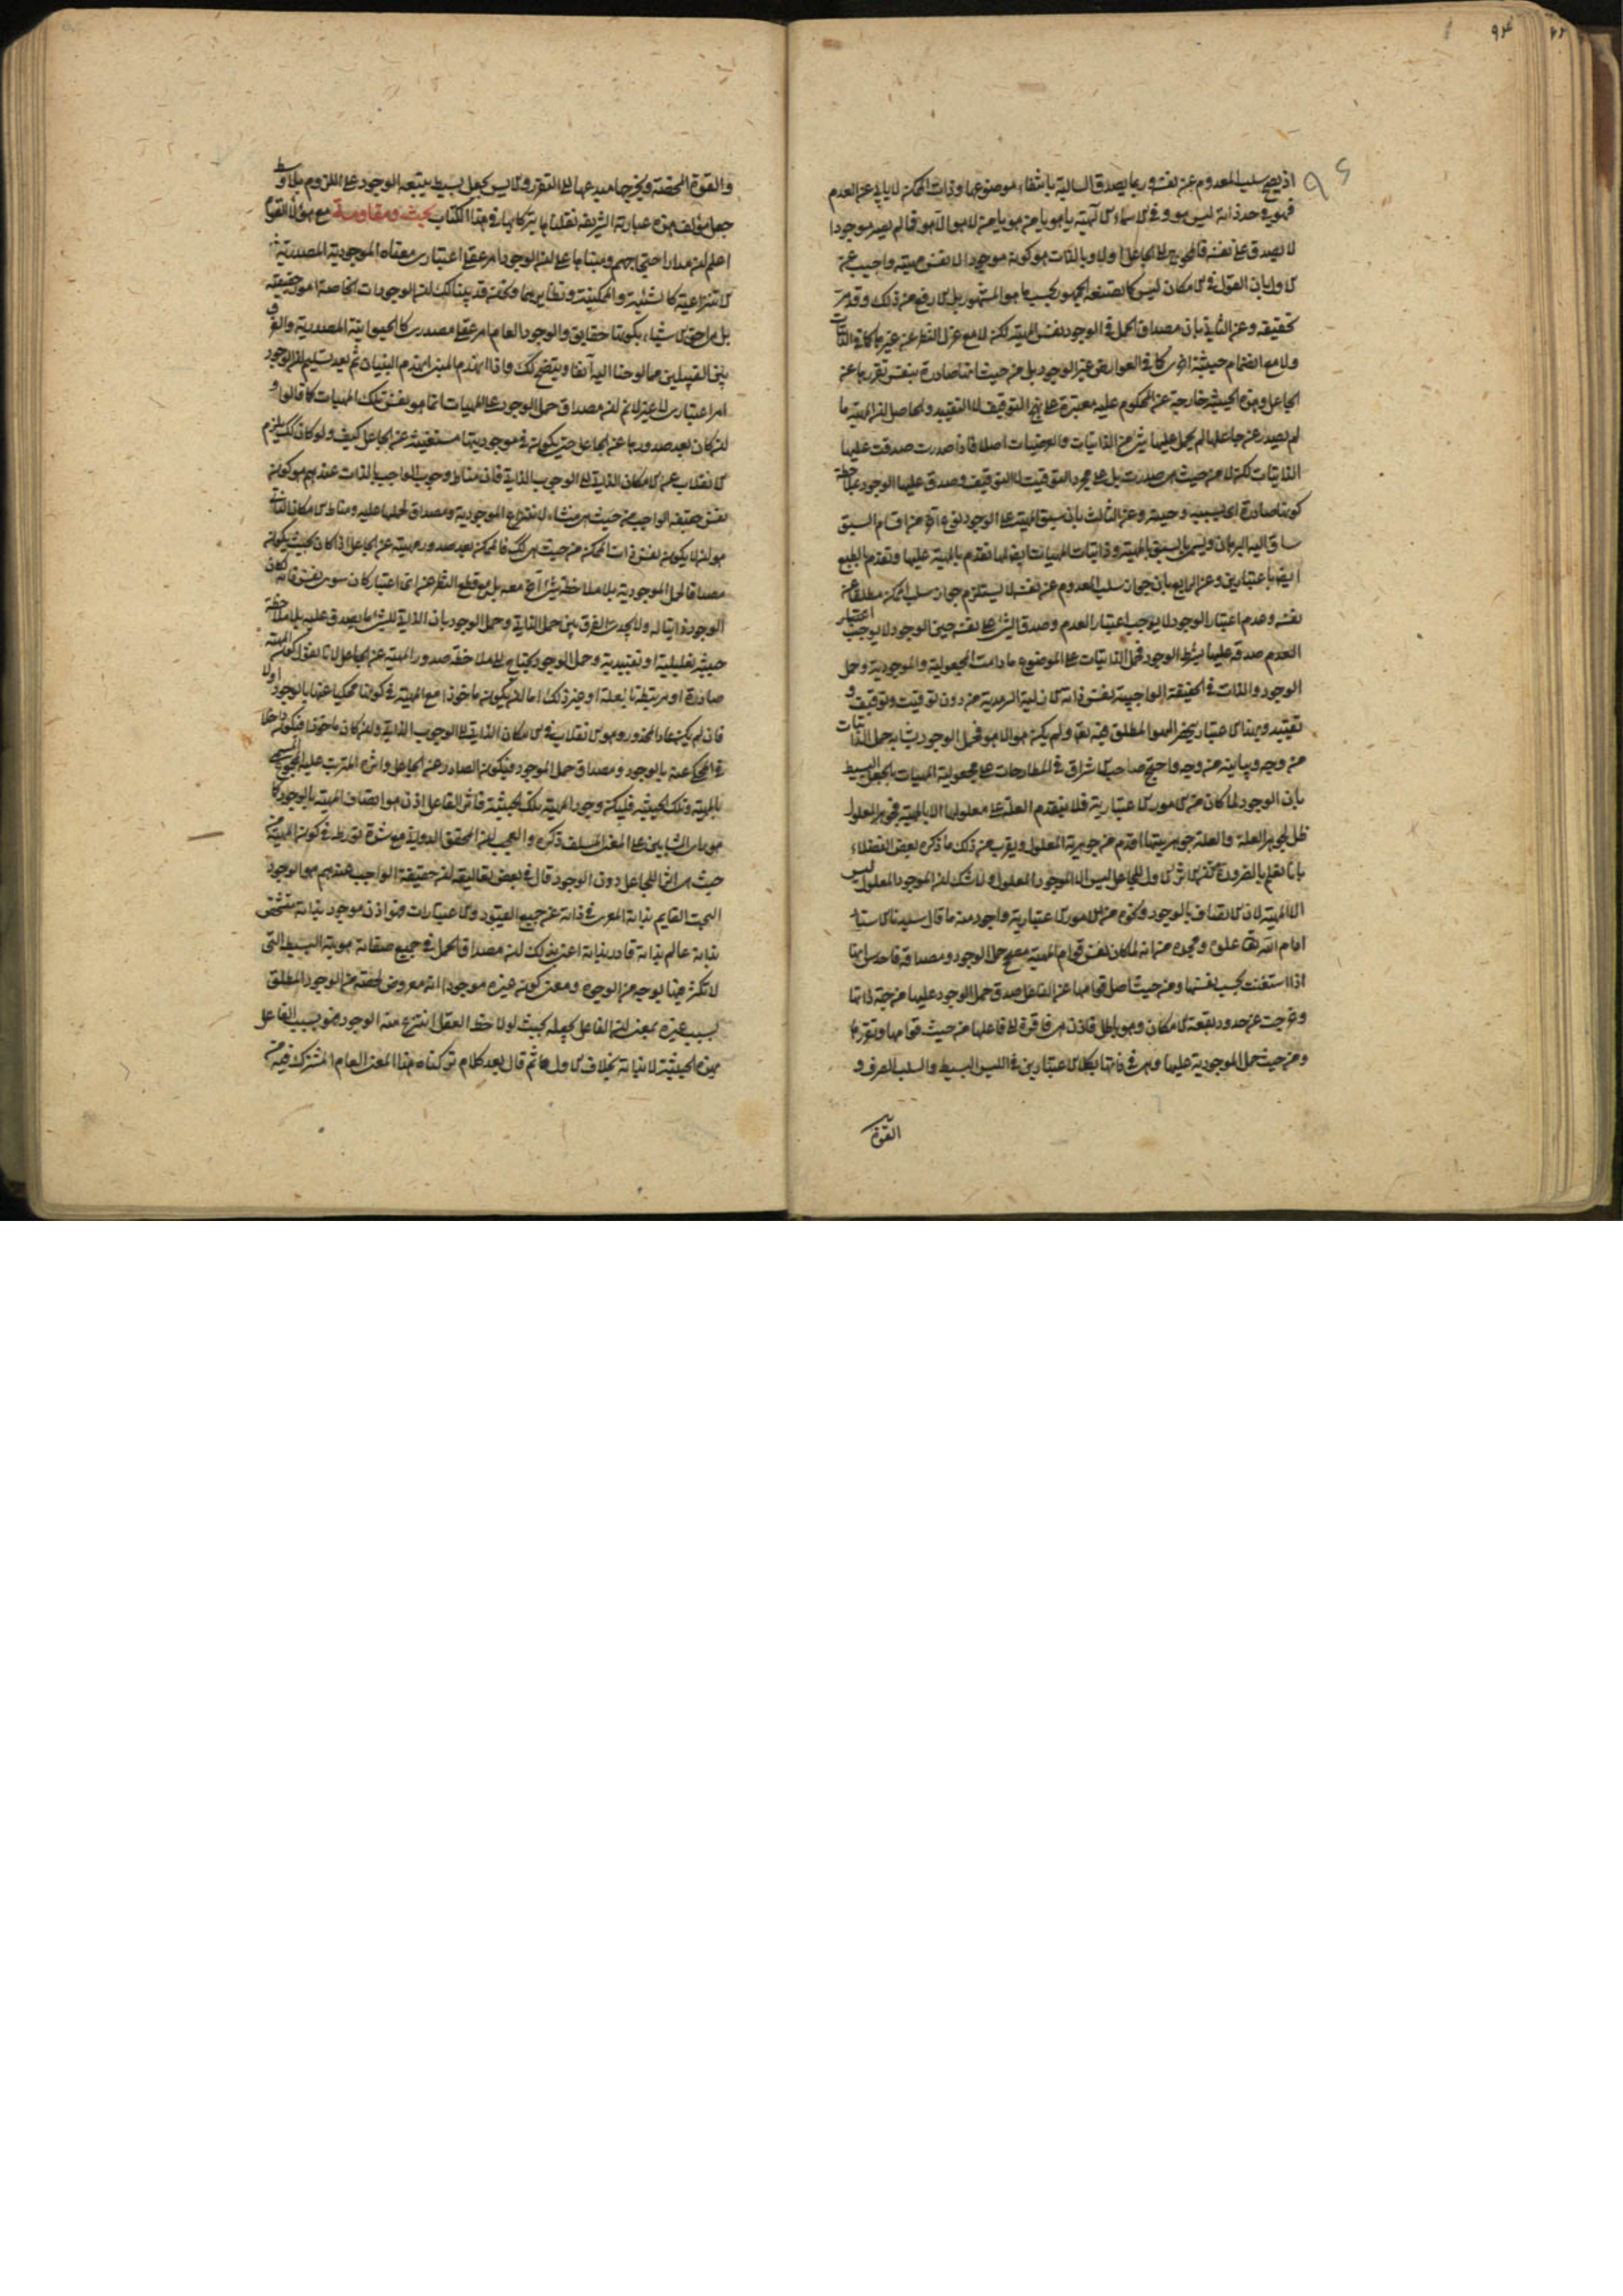 اذ يصح سلب المعدوم عن نفسه وربما يصدق السالبة بانتفاء موضوعها وذات الممكن لا يأبى عن العدم
فهو في حد ذاته ليس هو وفي الاسماء الالهية يا هو يا من هو يا من لا هو الا هو فما لم يصر موجودا
لا يصدق على نفسه فالمحوج الى الجاعل اولا وبالذات هو كونه موجودا لا نفس مهيته واجيب عن
الاول بان القول في الامكان ليس كما يصنعه الجمهور بحسب ما هو المشهور بل الارفع من ذلك وقد مر
تحقيقه وعن الثاني بان مصداق الحمل في الوجود نفس المهية لكن لا مع عزل النظر عن غيرها كما في الذاتيات
ولا مع انضمام حيثية اخرى كما في العوارض غير الوجود بل من حيث انها صادرة بنفس تقررها عن
الجاعل وهذه الحيثية خارجة عن المحكوم عليه معتبرة على نهج التوقيف لا التقييد والحاصل ان المهية ما
لم يصدر عن جاعلها لم يحمل عليها شيء من الذاتيات والعرضيات اصلا فاذا صدرت صدقت عليها
الذاتيات لكن لا من حيث هي صدرت بل على مجرد التوقيت لا التوقيف وصدق عليها الوجود بملاحظة
كونها صادرة اي بسببه وحينه وعن الثالث بان سبق المهية على الوجود نوع آخر من اقسام السبق
ساق اليه البرهان ويسمى بالسبق بالمهية وذاتيات المهيات ايضا لها تقدم بالمهية عليها وتقدم بالطبع
ايضا باعتبارين وعن الرابع بان جواز سلب المعدوم عن نفسه لا يستلزم جواز سلب الممكن مطلقا عن
نفسه وعدم اعتبار الوجود لا يوجب اعتبار العدم وصدق الشيء على نفسه حين الوجود لا يوجب اعتبار
العدم صدقه عليها بشرط الوجود فحمل الذاتيات على الموضوع ما دامت المجعولية والموجودية وحمل
الوجود والذات في الحقيقة الواجبية نفس ذاته الازلية السرمدية من دون توقيت وتوقيف و
تقييد وبهذا الاعتبار ينحصر الهو المطلق فيه تعالى ولم يكن هو الا هو فحمل الوجود يشابه حمل الذاتيات
من وجه ويباينه من وجه واحتج صاحب الاشراق في المطارحات على مجعولية المهيات بالجعل البسيط
بان الوجود لما كان من الامور الاعتبارية فلا يتقدم العلة على معلولها الا بالمهية فجوهر المعلول
ظل لجوهر العلة والعلة جوهريتها اقدم من جوهرية المعلول ويقرب من ذلك ما ذكره بعض الفضلاء
بانا نعلم بالضرورة ان الاثر الاول للجاعل ليس الا الموجود المعلول ولا شك ان الموجود المعلول ليس
الا المهية لان الاتصاف بالوجود ونحوه من الامور الاعتبارية واجود منه ما قال سيدنا الاستاد
ادام الله تعالى علوه ومجده من انه لما كان نفس قوام المهية مصحح حمل الوجود ومصداقه فاحدس انها
اذا استغنت بحسب نفسها ومن حيث اصل قوامها عن الفاعل صدق حمل الوجود عليها من جهة ذاتها
وخرجت عن حدود بقعة الامكان وهو باطل فاذن هي فاقرة الى فاعلها من حيث قوامها وتقررها
ومن حيث حمل الموجودية عليها وهي في ذاتها بكلا الاعتبارين في الليس البسيط والسلب الصرف و
القوة
والقوة المحضة ويخرجها مبدعها الى التقرر والايس بجعل بسيط يتبعه الوجود على اللزوم بلا وسط
جعل مؤلف هذه عبارته الشريفة نقلناها تبركا بها في هذا الكتاب بحث ومقاومة مع هؤلاء القوم
اعلم ان مدار احتجاجهم ومبناها على ان الوجود امر عقلي اعتباري معناه الموجودية المصدرية
الانتزاعية كالشيئية والممكنية ونظايرهما ونحن قد بينا لك ان الوجودات الخاصة امور حقيقية
بل هي احق الاشياء بكونها حقايق والوجود العام امر عقلي مصدري كالحيوانية المصدرية والفرق
بين القبيلين مما لوحنا اليه آنفا ويتضح لك واذا انهدم المبنى انهدم البنيان ثم بعد تسليم ان الوجود
امر اعتباري لا غير لا نم ان مصداق حمل الوجود على المهيات انما هو نفس تلك المهيات كما قالوا و
ان كان بعد صدورها عن الجاعل حتى يكون في موجوديتها مستغنية عن الجاعل كيف ولو كان كذلك يلزم
الانقلاب عن الامكان الذاتي الى الوجوب الذاتي فان مناط وجوب الواجب بالذات عندهم هو كونه
نفس حقيقة الواجب من حيث هي منشاء لانتزاع الموجودية ومصداق لحملها عليه ومناط الامكان الذاتي
هو ان لا يكون نفس ذات الممكن من حيث هي كذلك فالممكن بعد صدور مهيته عن الجاعل اذا كان بحيث يكون
مصداقا لحمل الموجودية بلا ملاحظة شيء آخر معه بل مع قطع النظر عن اي اعتبار كان سوى نفس ذاته كان
الوجود ذاتيا له ولا يجدى الفرق بين حمل الذاتي وحمل الوجود بان الذاتي للشيء ما يصدق عليه بلا ملاحظة
حيثية تعليلية او تقييدية وحمل الوجود يحتاج الى ملاحظة صدور المهية عن الجاعل لانا نقول كون المهية
صادرة او مرتبطة بالعلة او غير ذلك اما ان يكون ماخوذا مع المهية في كونها محكيا عنها بالوجود اولا
فان لم يكن عاد المحذور وهو الانقلاب في الامكان الذاتي الى الوجوب الذاتي وان كان ماخوذا فيكون داخلا
في المحكي عنه بالوجود ومصداق حمل الموجود فيكون الصادر عن الجاعل واثره المترتب عليه المجموع المسمى
بالمهية وتلك الحيثية فليكن وجود المهية تلك الحيثية فاثر الفاعل اذن هو اتصاف المهية بالوجود كما
هو راى المشايين على المعنى المسلف ذكره والعجب ان المحقق الدواني مع شدة تورطه في كون المهية من
حيث هي اثر الجاعل دون الوجود قال في بعض تعاليقه ان حقيقة الواجب عندهم هو الوجود
البحت القايم بذاته المعرى في ذاته عن جميع القيود والاعتبارات فهو اذن موجود بذاته متشخص
بذاته عالم بذاته قادر بذاته اعني بذلك ان مصداق الحمل في جميع صفاته هويته البسيطة التي
لا تكثر فيها بوجه من الوجوه ومعنى كون غيره موجودا انه معروض لحصة من الوجود المطلق
بسبب غيره بمعنى ان الفاعل يجعله بحيث لو لاحظه العقل انتزع منه الوجود فهو بسبب الفاعل
بهذه الحيثية لا بذاته بخلاف الاول ثم قال بعد كلام تركناه هذا المعنى العام المشترك فيه من